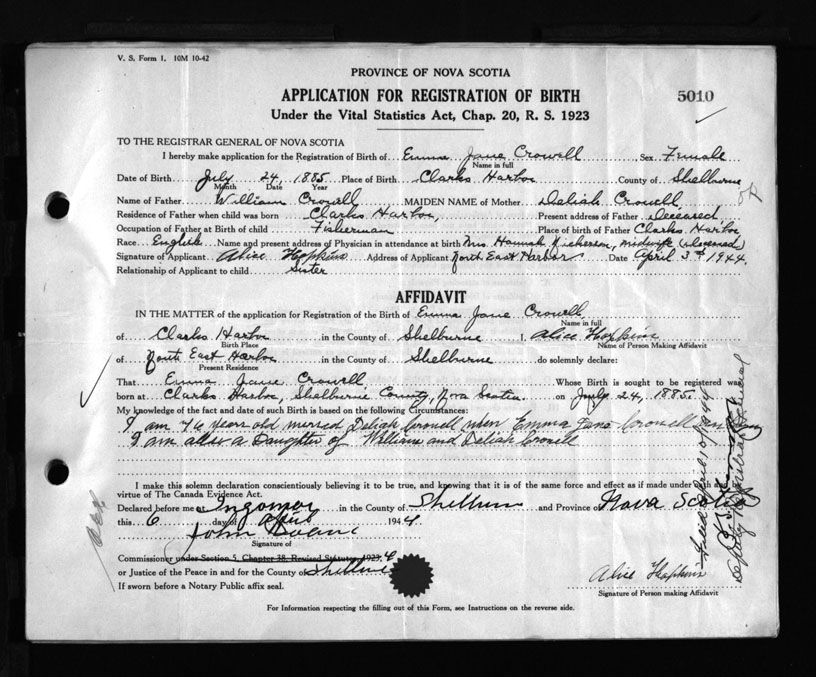 V. S. Form 1. 10M 10-42
PROVINCE OF NOVA SCOTIA
APPLICATION FOR REGISTRATION OF BIRTH
5010
Under the Vital Statistics Act, Chap. 20, R. S. 1923
TO THE REGISTRAR GENERAL OF NOVA SCOTIA
I hereby make application for the Registration of Birth of Emma Jane Crowell Sex Female
Name in full
Date of Birth July 24, 1885 Place of Birth Clarks Harbor County of Shelburne
Month Date Year
Name of Father William Crowell MAIDEN NAME of Mother Deliah Crowell
Residence of Father when child was born Clarks Harbor, Present address of Father Deceased
Occupation of Father at Birth of child Fisherman Place of birth of Father Clarks Harbor
Race English Name and present address of Physician in attendance at birth Mrs. Hannah Nickerson, midwife (deceased)
Signature of Applicant Alice Hopkins Address of Applicant North East Harbor Date April 3rd, 1944.
Relationship of Applicant to child Sister
AFFIDAVIT
IN THE MATTER of the application for Registration of the Birth of Emma Jane Crowell,
Name in full
of Clarks Harbor in the County of Shelburne I, Alice Hopkins
Birth Place Name of Person Making Affidavit
of North East Harbor in the County of Shelburne do solemnly declare:
Present Residence
That Emma Jane Crowell Whose Birth is sought to be registered was
born at Clarks Harbor, Shelburne County, Nova Scotia on July 24, 1885.
My knowledge of the fact and date of such Birth is based on the following Circumstances:
I am 76 years old Deliah Crowell when Emma Jane Crowell
I am also a Daughter of William and Deliah Crowell
I make this solemn declaration conscientiously believing it to be true, and knowing that it is of the same force and effect as if made under
virtue of The Canada Evidence Act.
Declared before me at Ingomar in the County of Shelburne and Province of Nova Scotia
this 6 day of April 1944.
John
Signature of
Commissioner under Section 5, Chapter 38, Revised Statutes, 1923,
or Justice of the Peace in and for the County of Shelburne
Alice Hopkins
If sworn before a Notary Public affix seal.
Signature of Person making Affidavit
For Information respecting the filling out of this Form, see Instructions on the reverse side.